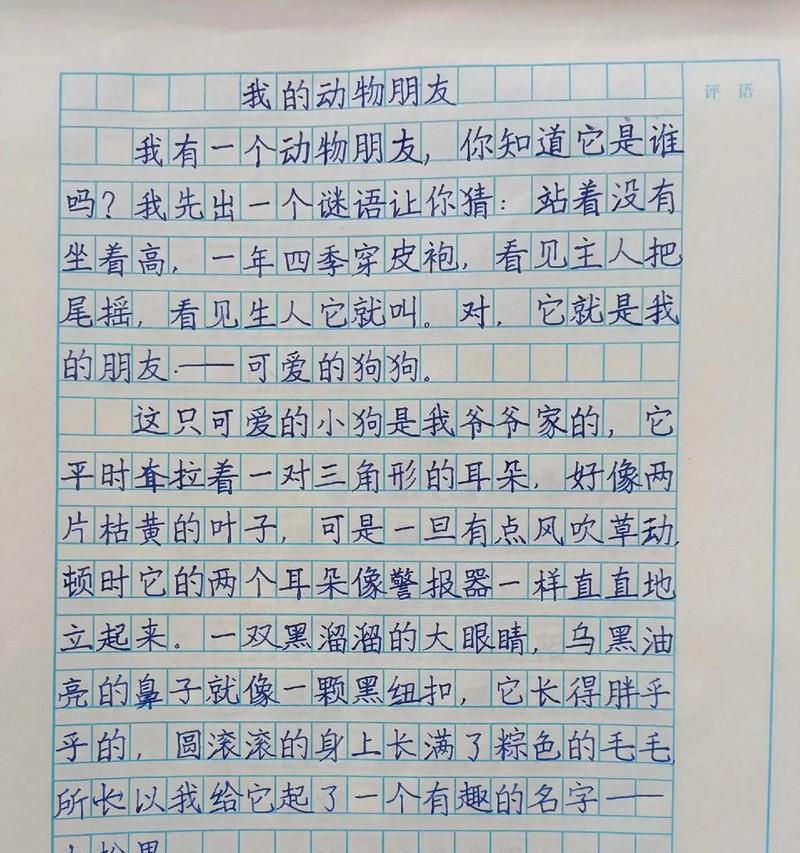 评 语
我的动物朋友
我有一个动物朋友，你知道它是谁
吗？我先出一个谜语让你猜：站着没有
坐着高，一年四季穿皮袍，看见主人把
尾摇，看见生人它就叫。对，它就是我
的朋友——可爱的狗狗。
这只可爱的小狗是我爷爷家的，它
平时耷拉着一对三角形的耳朵，好像两
片枯黄的叶子，可是一旦有点风吹草动，
顿时它的两个耳朵像警报器一样直直地
立起来。一双黑溜溜的大眼睛，乌黑油
亮的鼻子就像一颗黑纽扣，它长得胖乎
乎的，圆滚滚的身上长满了棕色的毛毛
所以我给它起了一个有趣的名字——